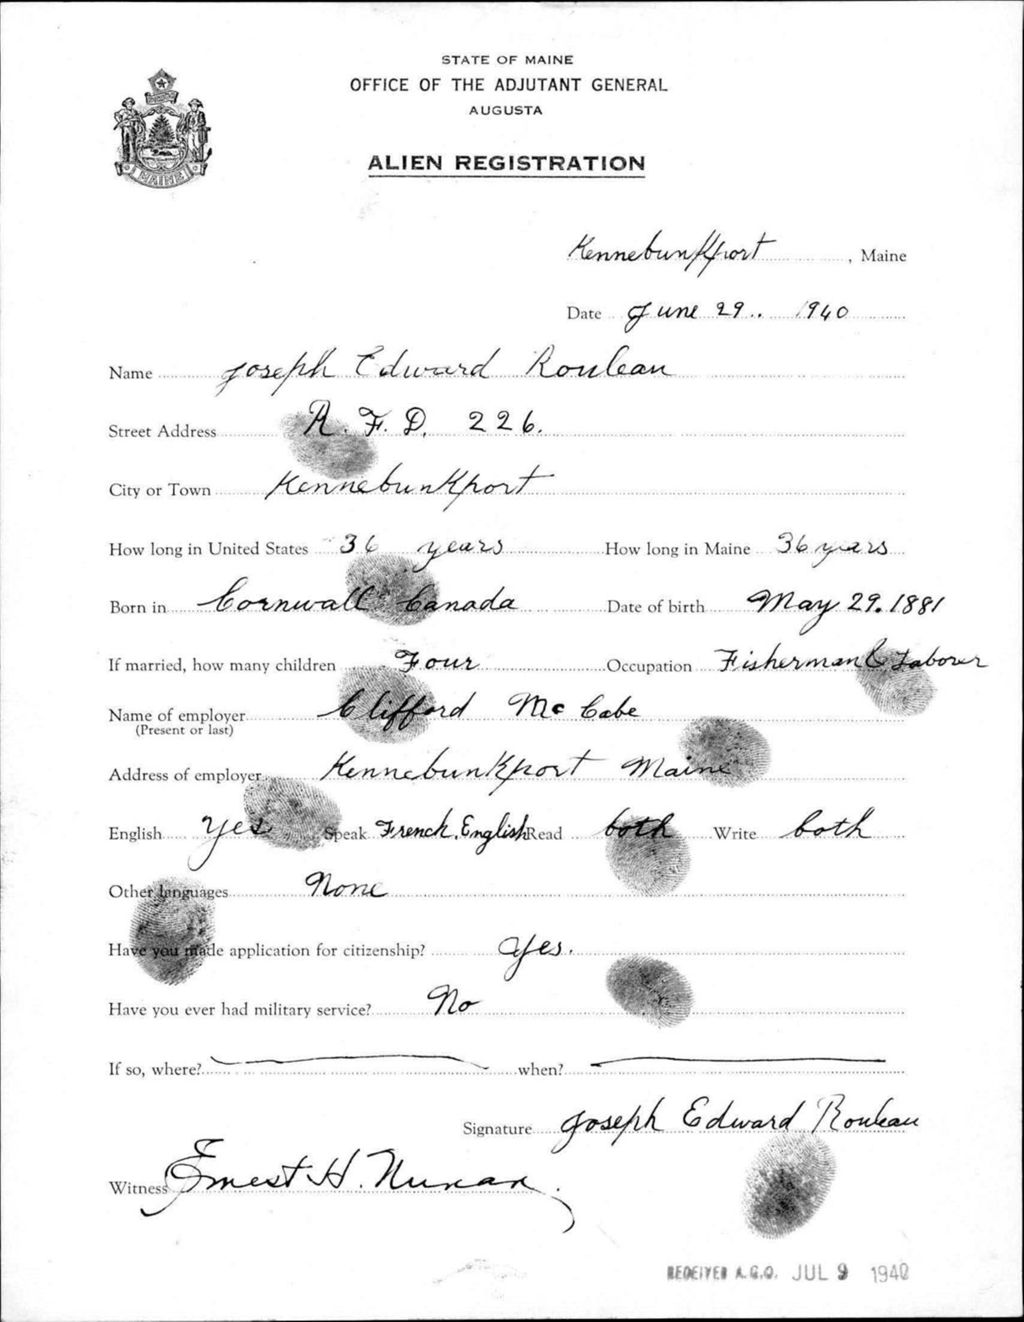 STATE OF MAINE
OFFICE OF THE ADJUTANT GENERAL
AUGUSTA
ALIEN REGISTRATION
MAINE
Kennebunkport, Maine
Date June 29.. 1940
Name Joseph Edward Rouleau
Street Address R. F. D. 226.
City or Town Kennebunkport
How long in United States 36 years How long in Maine 36 years
Born in Cornwall Canada Date of birth May 29. 1881
If married, how many children Four Occupation Fisherman & Laborer
Name of employer Clifford McCabe
(Present or last)
Address of employer Kennebunkport Maine
English Yes Speak French. English Read both Write both
Other languages None
Have you made application for citizenship? Yes.
Have you ever had military service? No
If so, where? when?
Signature Joseph Edward Rouleau
Witness Ernest H. Nunan
RECEIVED A.G.O. JUL 9 1940